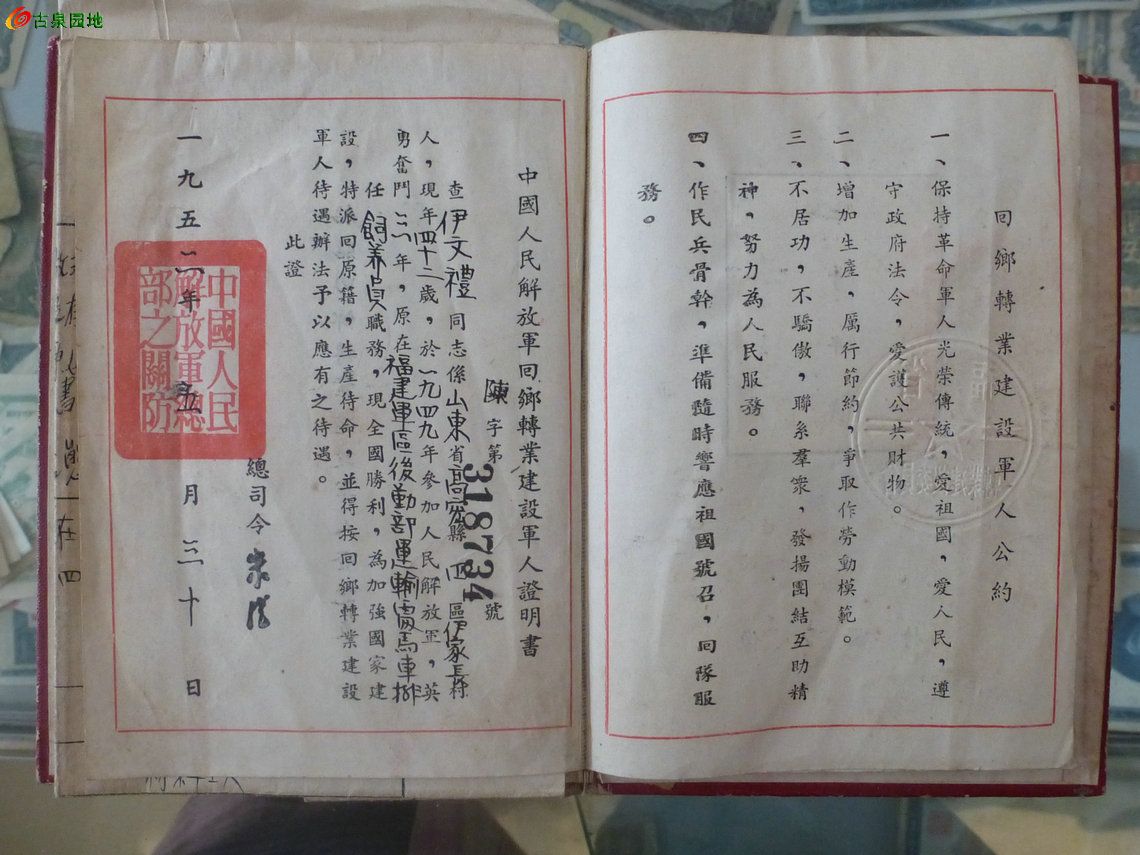 古泉园地
回鄉轉業建設軍人公約
一、保持革命軍人光荣傳統，愛祖國，愛人民，遵
守政府法令，愛護公共財物。
二、增加生產，厲行節約，爭取作勞動模範。
三、不居功，不驕傲，聯系羣衆，發揚團結互助精
神，努力為人民服務。
四、作民兵骨幹，準備隨時響應祖國號召，回隊服
務。
中國人民解放軍回鄉轉業建設軍人證明書
陳字第318734號
查伊文禮同志係山東省高密縣四區伊家長村
人，現年四十二歲，於一九四九年參加人民解放軍，英
勇奮鬥三年，原在福建軍區後勤部運輸馬車排
任飼养員職務，現全國勝利，為加強國家建
設，特派回原籍，生產待命，並得按回鄉轉業建設
軍人待遇辦法予以應有之待遇。
此證
總司令 朱德
一九五二年五月三十日
中國人民
解放軍總
部之關防